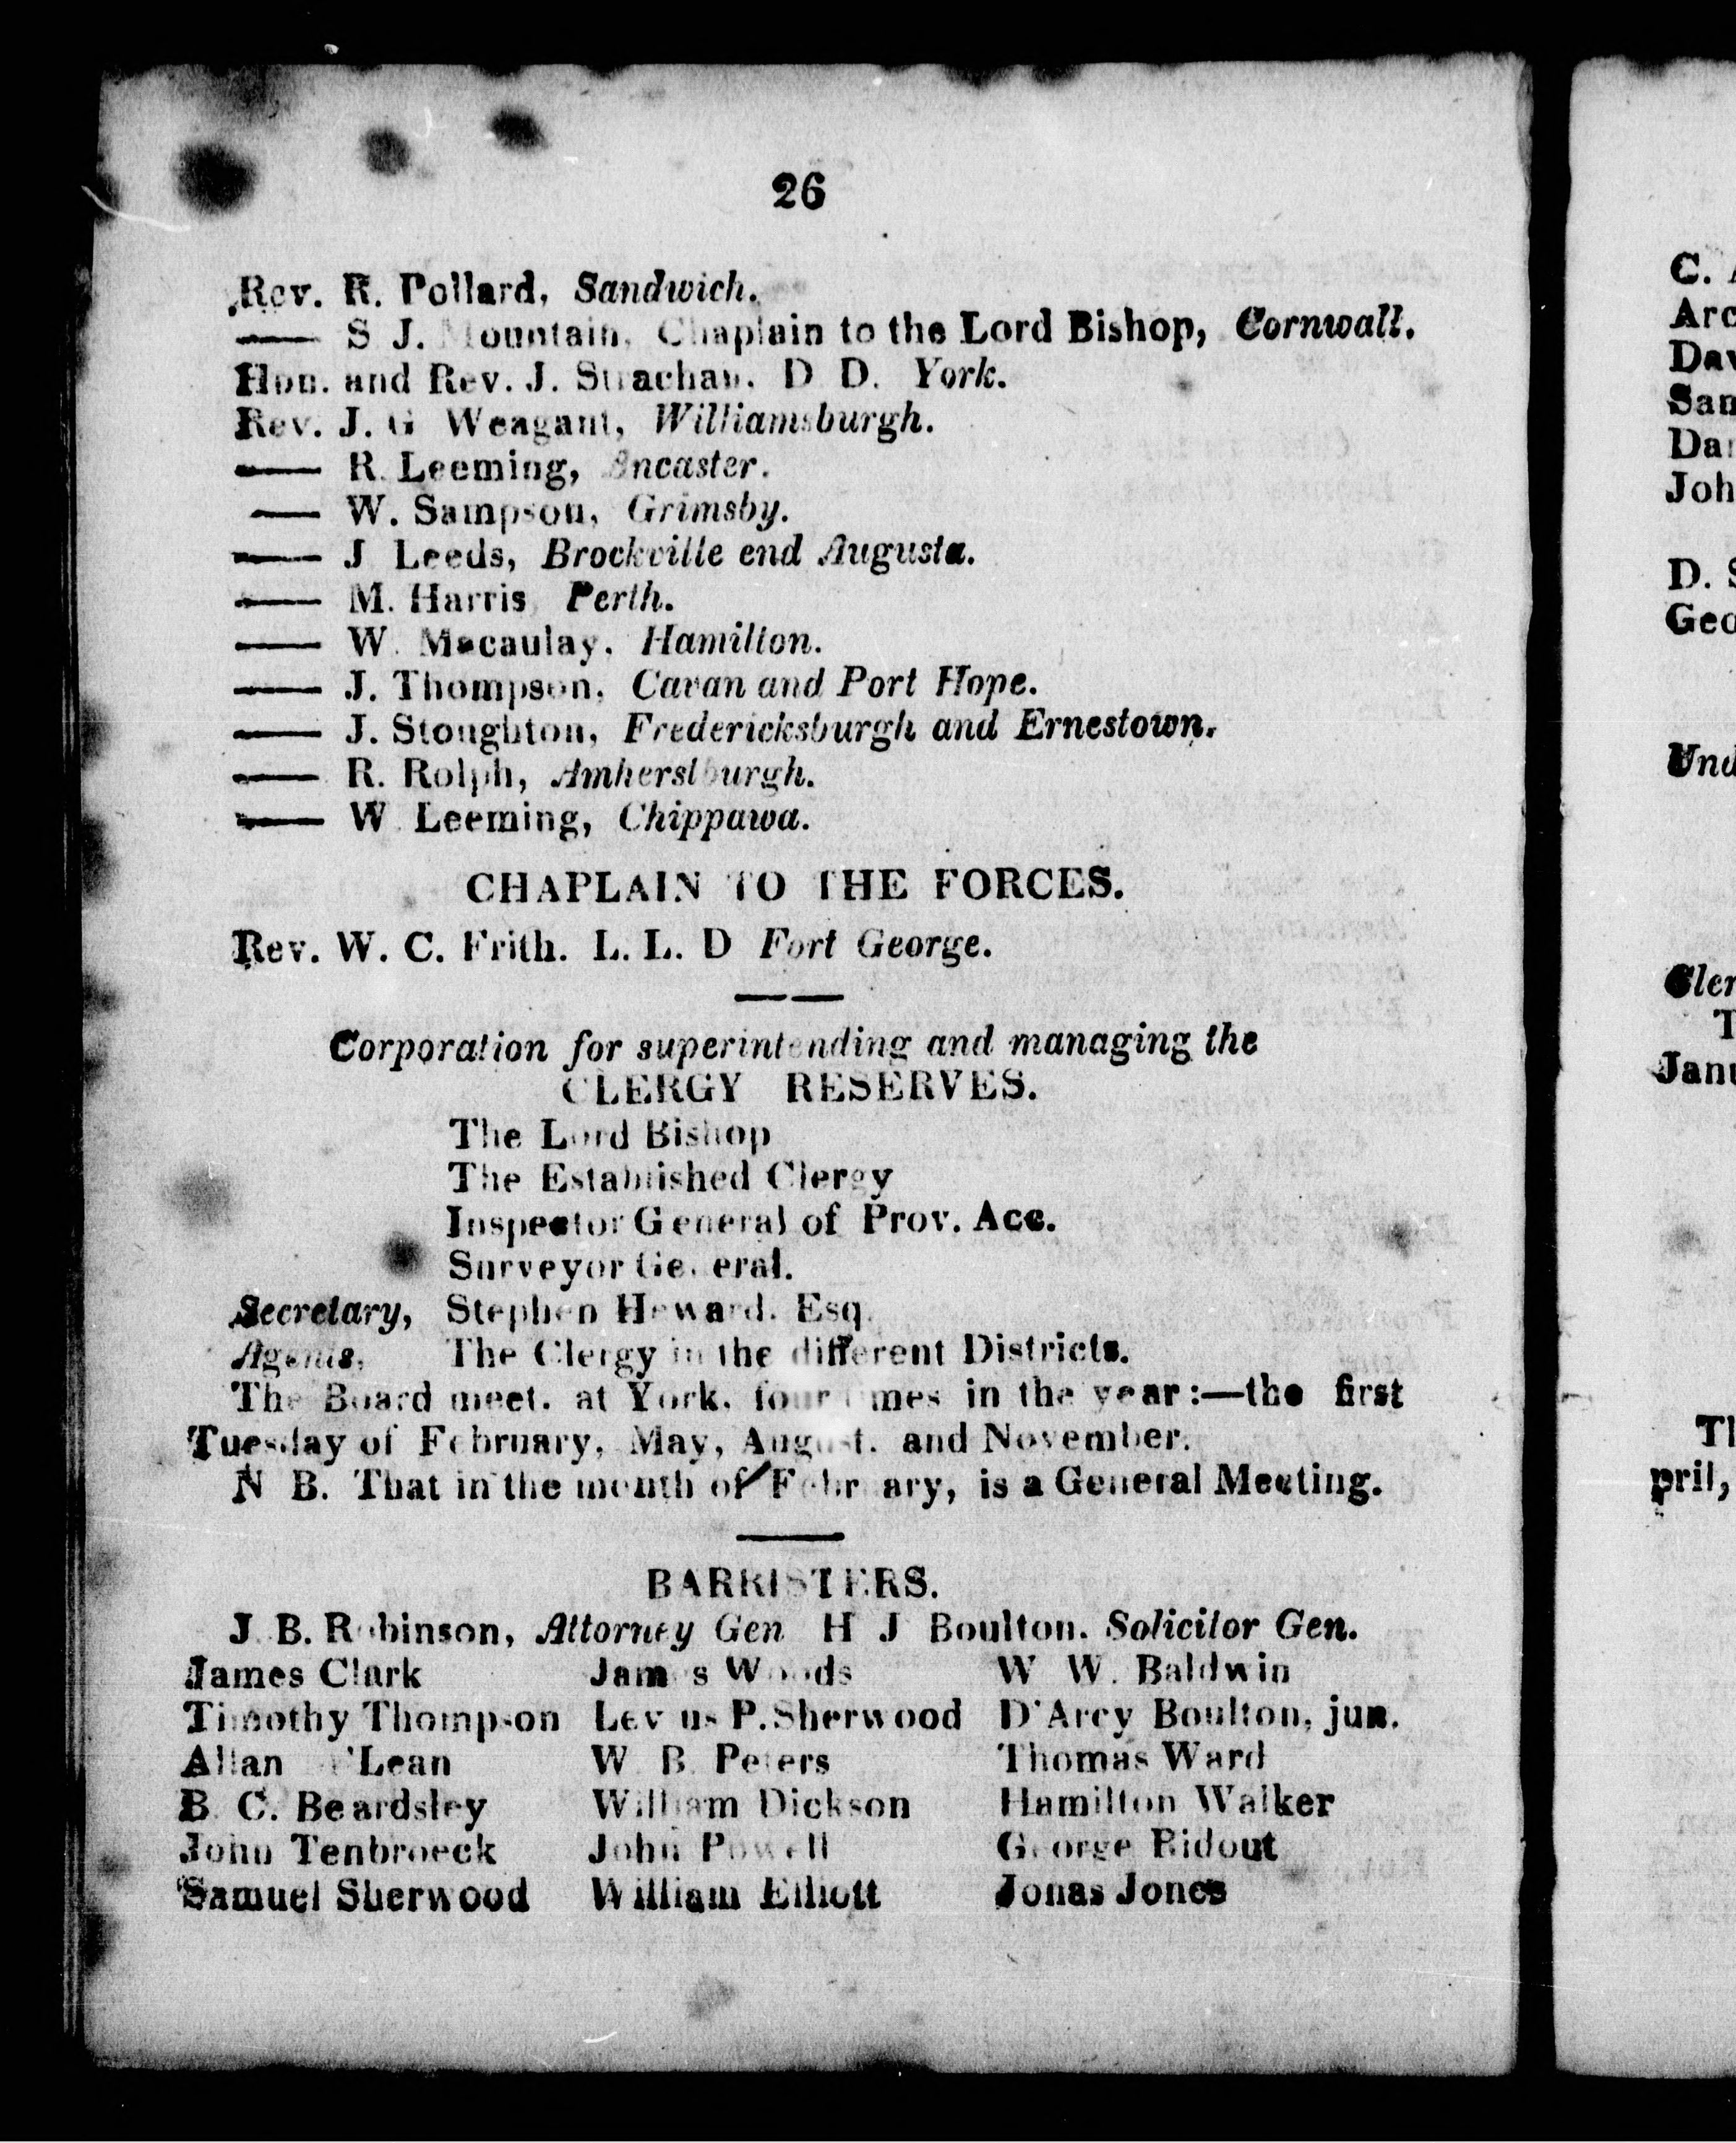 26
Rev. R. Pollard, Sandwich.
—— S J. Mountain, Chaplain to the Lord Bishop, Cornwall.
Hon. and Rev. J. Strachan, D D. York.
Rev. J. G Weagant, Williamsburgh.
—— R. Leeming, Ancaster.
—— W. Sampson, Grimsby.
—— J Leeds, Brockville end Augusta.
—— M. Harris, Perth.
—— W. Macaulay, Hamilton.
—— J. Thompson, Cavan and Port Hope.
—— J. Stoughton, Fredericksburgh and Ernestown.
—— R. Rolph, Amherstburgh.
—— W. Leeming, Chippawa.
CHAPLAIN TO THE FORCES.
Rev. W. C. Frith. L. L. D Fort George.
Corporation for superintending and managing the
CLERGY RESERVES.
The Lord Bishop
The Established Clergy
Inspector General of Prov. Acc.
Surveyor General.
Secretary, Stephen Heward, Esq.
Agents, The Clergy in the different Districts.
The Board meet. at York, four times in the year:—the first
Tuesday of February, May, August, and November.
N B. That in the month of February, is a General Meeting.
BARRISTERS.
J. B. Robinson, Attorney Gen H J Boulton, Solicitor Gen.
James Clark James Woods W W. Baldwin
Timothy Thompson Levius P. Sherwood D'Arcy Boulton, jun.
Allan M'Lean W B Peters Thomas Ward
B. C. Beardsley William Dickson Hamilton Walker
John Tenbroeck John Powell George Ridout
Samuel Sherwood William Elliott Jonas Jones